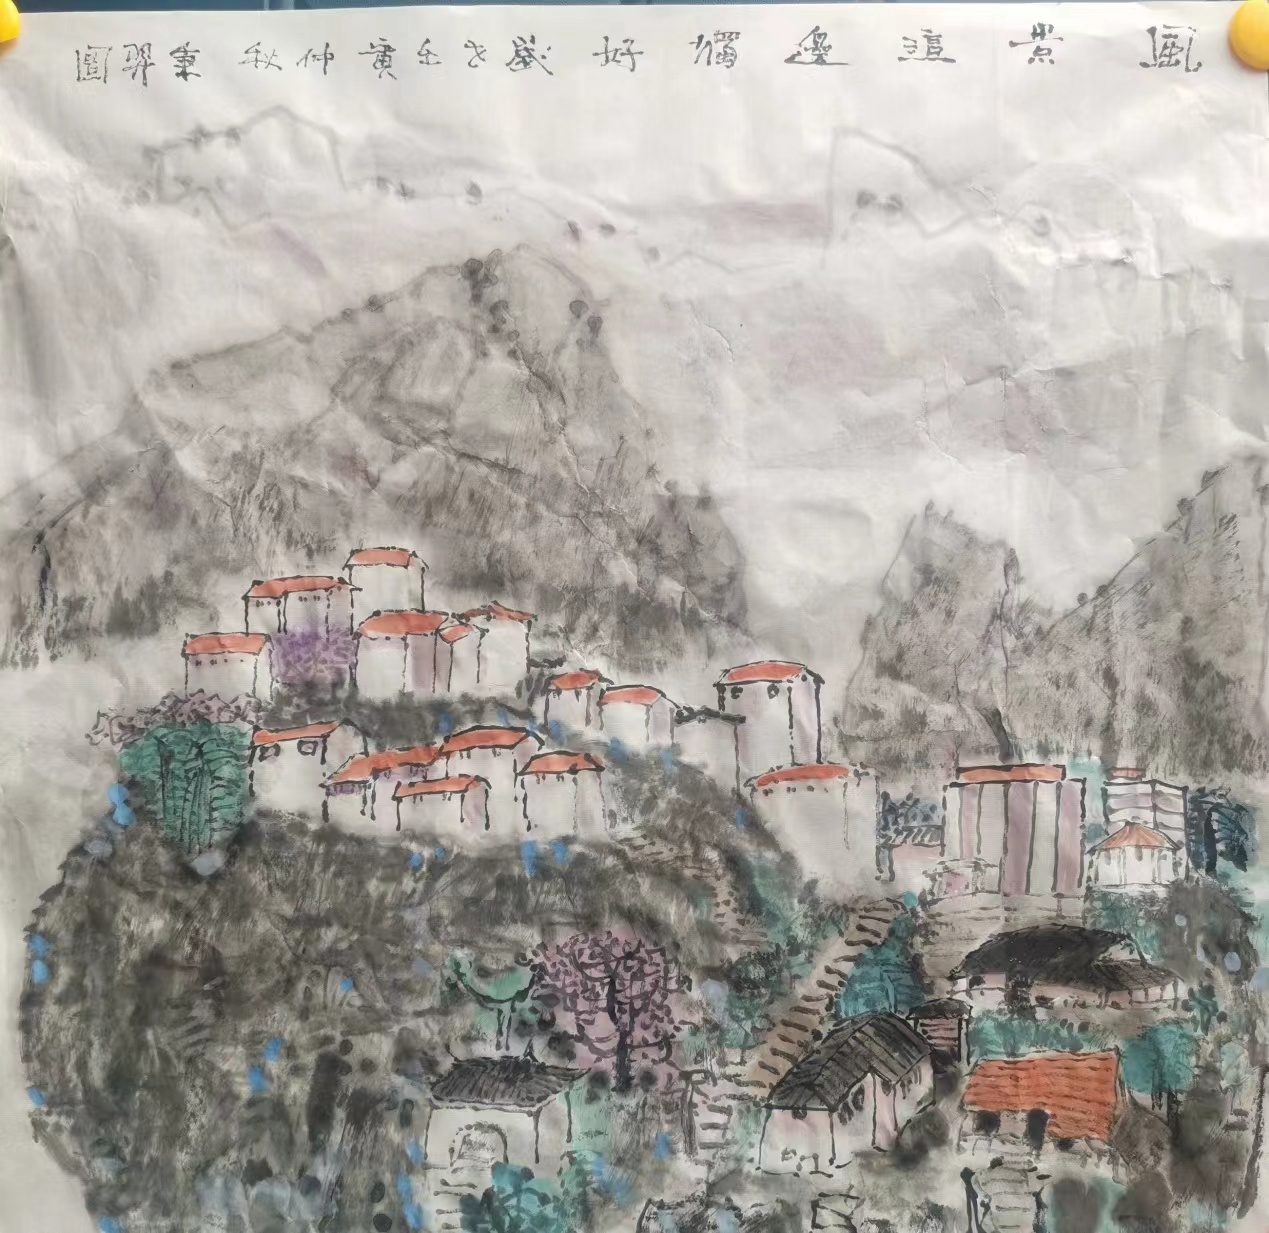 風景這邊獨好 歲壬寅仲秋 秉羿圖